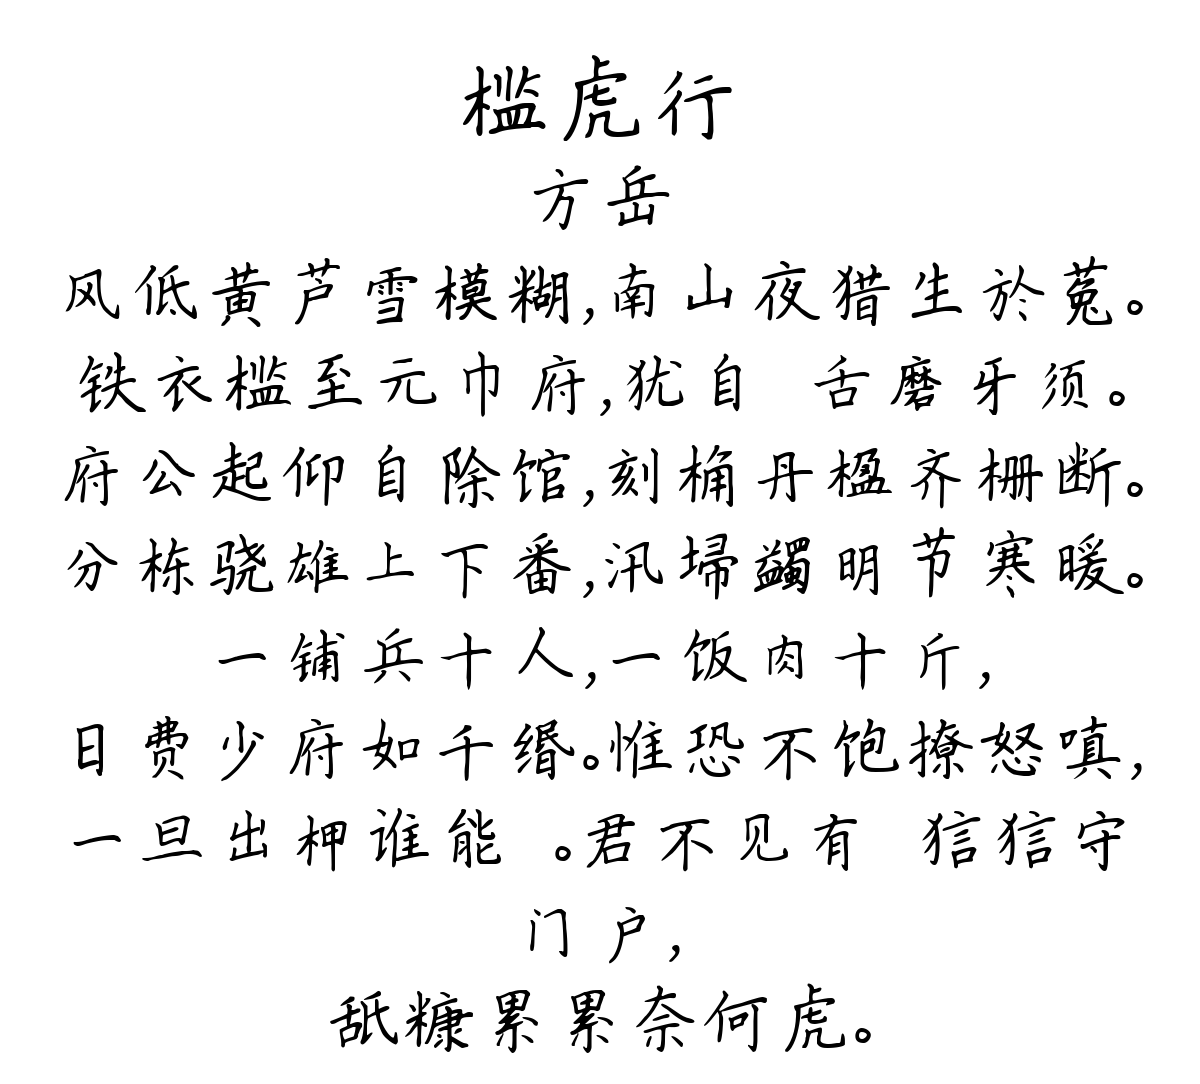 槛虎行
方岳
风低黄芦雪模糊,南山夜猎生於菟。
铁衣槛至元巾府,犹自 舌磨牙须。
府公起仰自除馆,刻桷丹楹齐栅断。
分栋骁雄上下番,汛埽蠲明节寒暖。
一铺兵十人,一饭肉十斤,
日费少府如千缗。惟恐不饱撩怒嗔,
一旦出柙谁能 。君不见有 狺狺守
门户,
舐糠累累奈何虎。